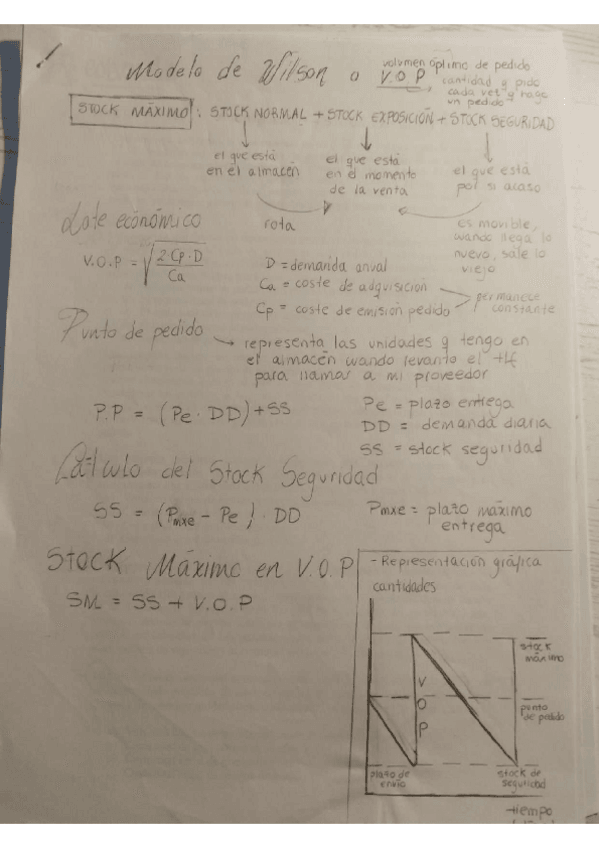 Modelo de Wilson o V.O.P
volumen óptimo de pedido
cantidad q pido
cada vez q hago
un pedido
STOCK MÁXIMO : STOCK NORMAL + STOCK EXPOSICIÓN + STOCK SEGURIDAD
el que está
en el almacén
el que está
en el momento
de la venta
el que está
por si acaso
rota
es movible,
cuando llega lo
nuevo, sale lo
viejo
Lote económico
V.O.P = √(2·Cp·D / Ca)
D = demanda anual
Ca = coste de adquisición
Cp = coste de emisión pedido
permanece
constante
Punto de pedido → representa las unidades q tengo en
el almacén cuando levanto el tlf
para llamar a mi proveedor
P.P = (Pe · DD) + SS
Pe = plazo entrega
DD = demanda diaria
SS = stock seguridad
Cálculo del Stock Seguridad
SS = (Pmxe - Pe) · DD
Pmxe = plazo máximo
entrega
Stock Máximo en V.O.P
SM = SS + V.O.P
- Representación gráfica
cantidades
stock
máximo
V
O
P
punto
de pedido
plazo de
envío
stock de
seguridad
tiempo